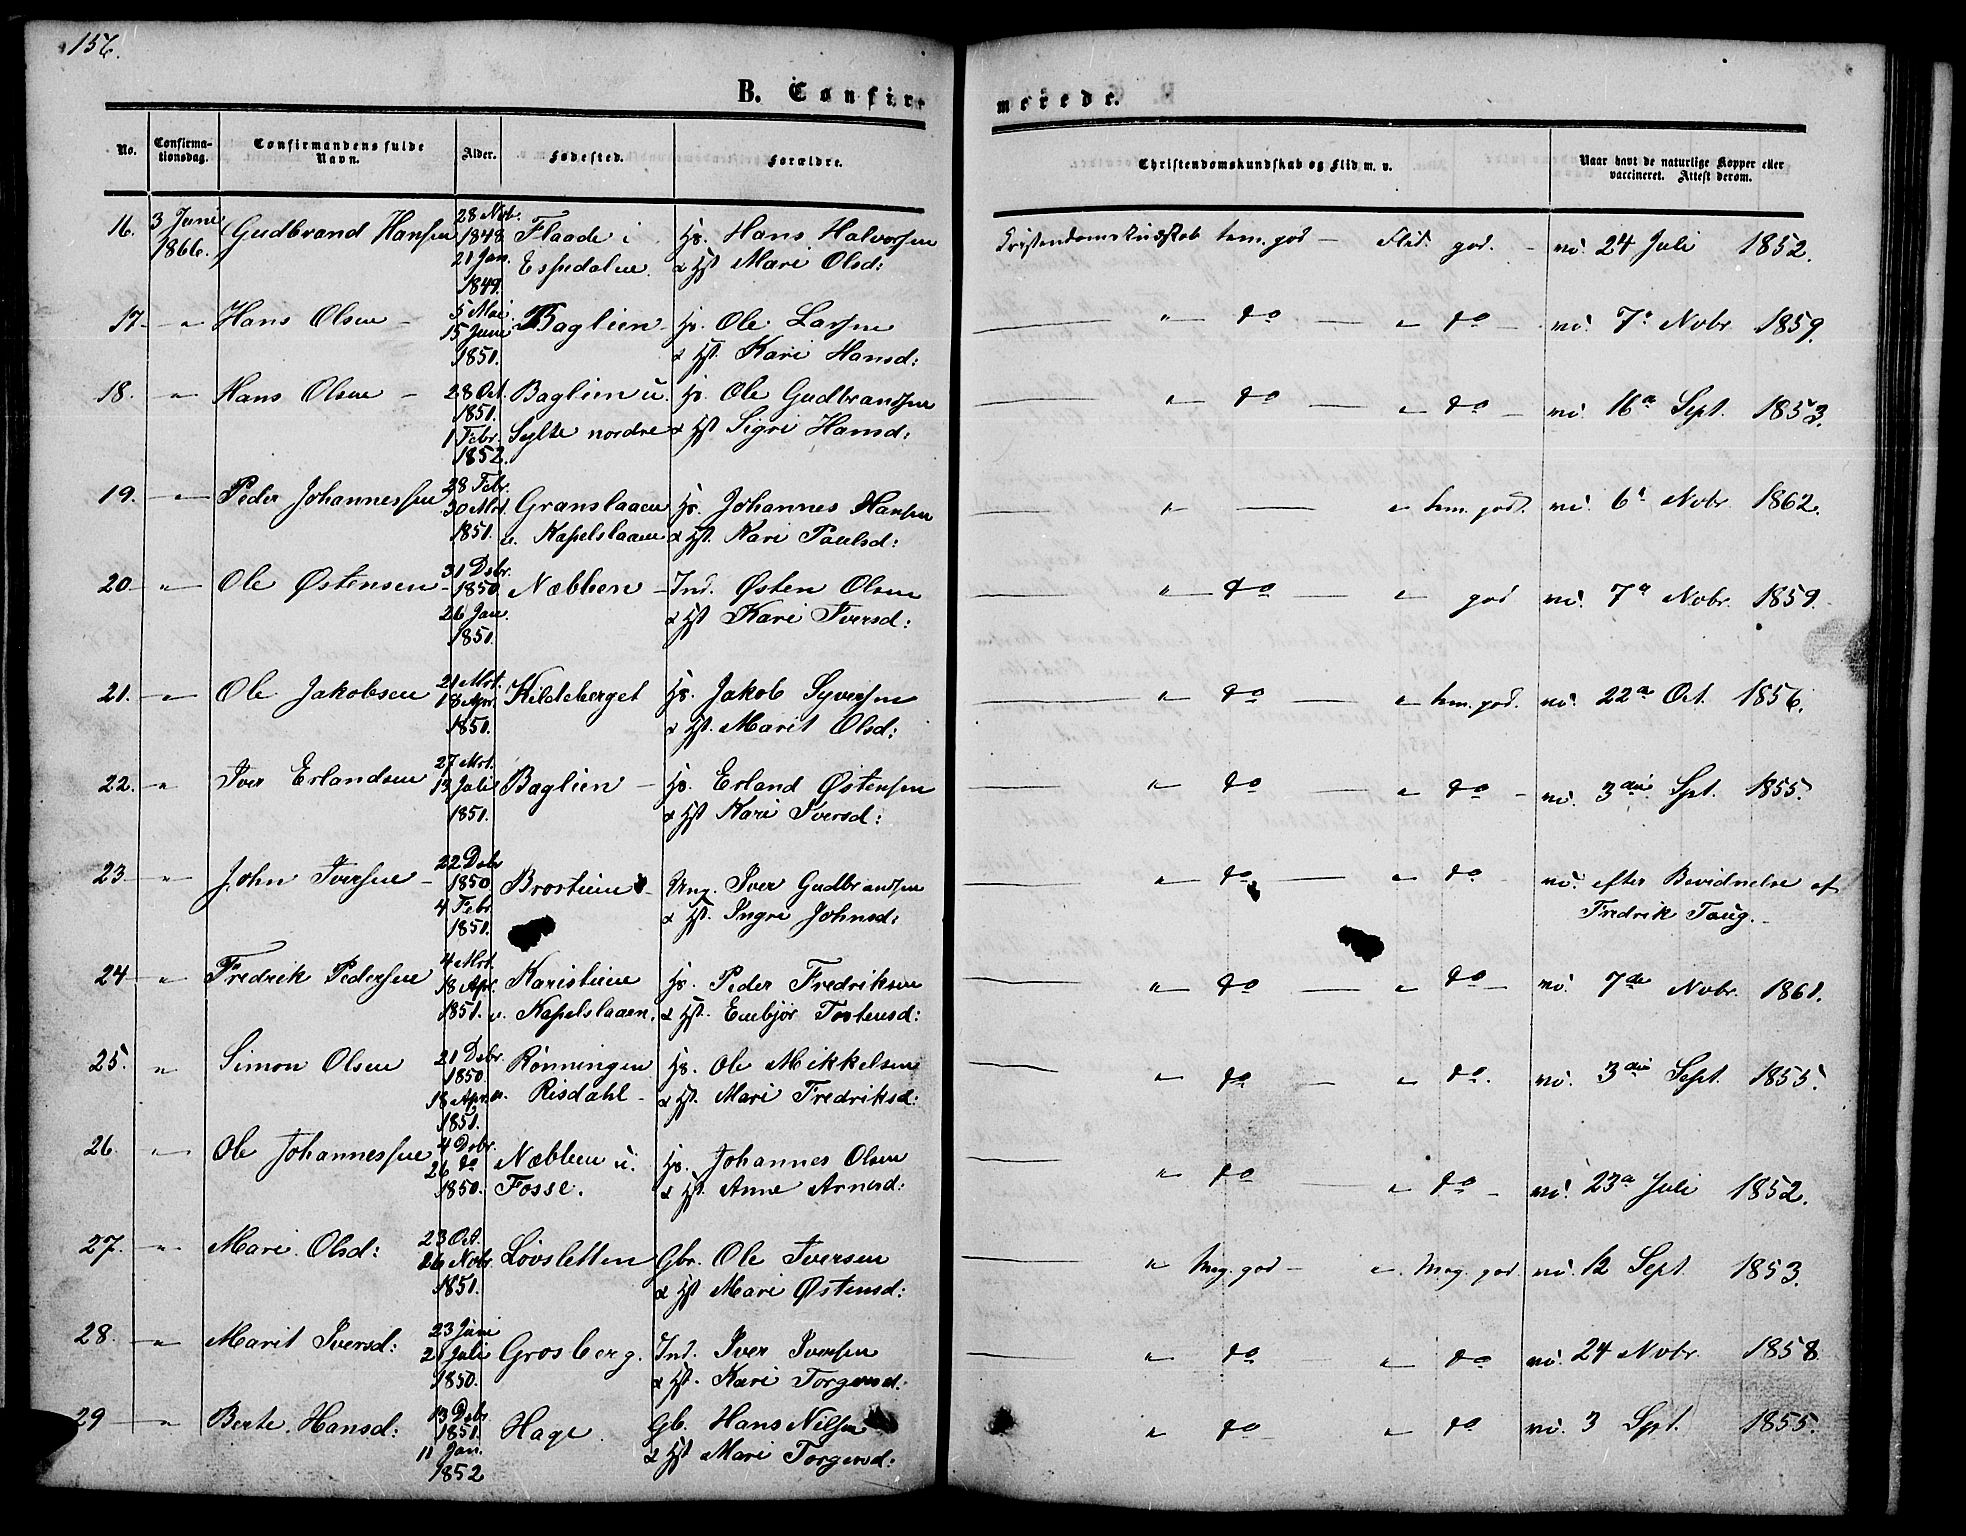 156.
B. Confir-
merede.
No.
Confirma-
tionsdag.
Confirmandens fulde
Navn.
Alder.
Fødested.
Forældre.
Christendomskundskab og Flid m. v.
Naar havt de naturlige Kopper eller
vaccineret. Attest derom.
16. 3 Juni 1866. Gudbrand Hansen 28 Nvbr. 1848 21 Jan. 1849. Flaade i Espedalen. Hans Halvorsen & Mari Olsd: Kristendomskundskab tem. god – Flid god. – 24 Juli 1852.
17 – " – Hans Olsen – 5 Mai 15 Juni 1851. Baglien – Ole Larsen & Kari Hansd: " do – " do – 7de Nvbr 1859.
18. " Hans Olsen – 28 Oct. 1851. 1 Febr. 1852. Baglien u. Sylte nordre Ole Gudbrandsen & Sigri Hansd: " do – " do – 16de Sept. 1853.
19. – " – Peder Johannessen 28 Febr. 30 Mrt. 1851. Granslaaen u. Kapelslaaen Johannes Hansen & Kari Paulsd: " – " tem. god. 6te Nvbr. 1862.
20 – " – Ole Østensen – 31 Dsbr. 1850 26 Jan. 1851. Næbben – Ind. Østen Olsen & Kari Iversd: " do – " god 7de Nvbr. 1859.
21. – " – Ole Jakobsen 21 Mrt. 18 Apr. 1851. Kildeberget Jakob Syversen & Marit Olsd: " do – " tem. god. 22de Oct. 1856.
22. – " Iver Erlandsen 27 Mrt. 13 Juli 1851. Baglien – Erland Østensen & Kari Iversd: " do – " do – 3die Spt. 1855.
23 – " – John Iversen – 22 Dsbr 1850 4 Febr. 1851. Brostuen – Ung. Iver Gudbrandsen & Ingri Johnsd: " do – " do – efter Bevidnelse af Fredrik Taug. –
24 – " – Fredrik Pedersen 4 Mrt. 18 Apr. 1851. Karistuen u. Kapelslaaen. Peder Fredriksen & Embjør Tostensd: " do – " do – 7de Nvbr. 1861.
25. " Simon Olsen 21 Dsbr. 1850 18 Apr. 1851. Rønningen u. Risdahl – Ole Mikkelsen & Mari Fredriksd: " do – " do. 3die Sept. 1855.
26. " – Ole Johannessen 4 Dsbr. 26 do 1850. Næbben u. Fosse. Johannes Olsen & Anne Arnesd: " do – " do – 23de Juli 1852.
27. – " – Mari Olsd: 23 Oct. 26 Nvbr. 1851. Løvsletten Gbr. Ole Iversen & Mari Østensd: " Meg. god – " Meg. god 12 Sept. 1853.
28. – " Marit Iversd: 23 Juni 21 Juli 1850. Grosberg. Ind. Iver Iversen & Kari Torgersd: " do – " do 24 Nvbr. 1858.
29 – " Berte Hansd: 13 Dsbr. 1851. 11 Jan. 1852 Hage. Gb. Hans Nilsen & Mari Torgersd: " do – " do 3 Spt. 1855.